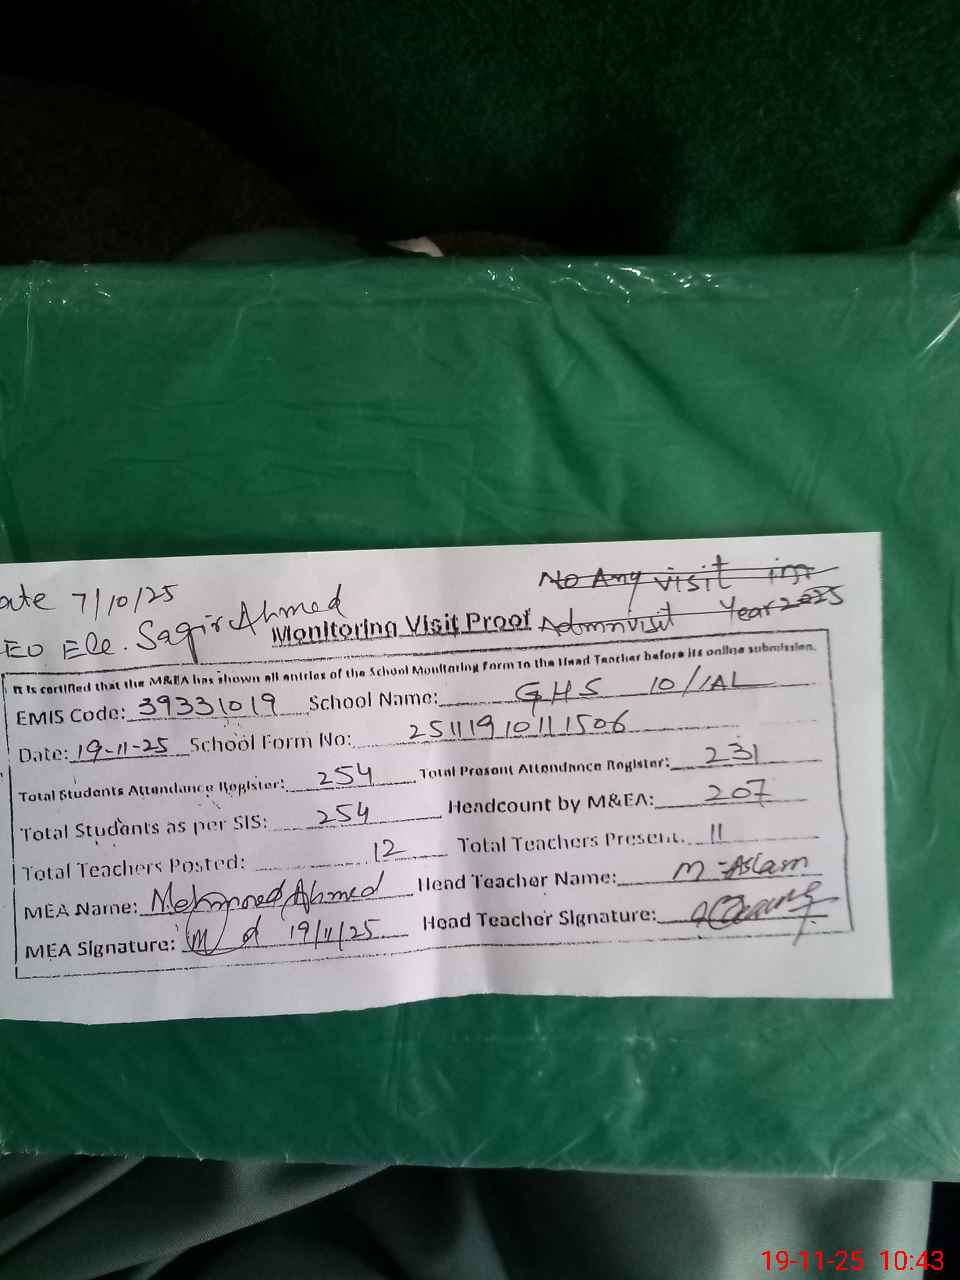 ate 7/10/25
No Any visit in
EO Ele. Sagir Ahmed
Monitoring Visit Proof
Admn visit Year 2025
It is certified that the M&EA has shown all entries of the School Monitoring Form to the Head Teacher before its online submission.
EMIS Code: 39331019 School Name: GHS 10/1AL
Date: 19-11-25 School Form No: 25111910111506
Total Students Attendance Register: 254 Total Present Attendance Register: 231
Total Students as per SIS: 254 Headcount by M&EA: 207
Total Teachers Posted: 12 Total Teachers Present: 11
MEA Name: Mehmood Ahmed Head Teacher Name: M-Aslam
MEA Signature: 19/11/25 Head Teacher Signature:
19-11-25 10:43